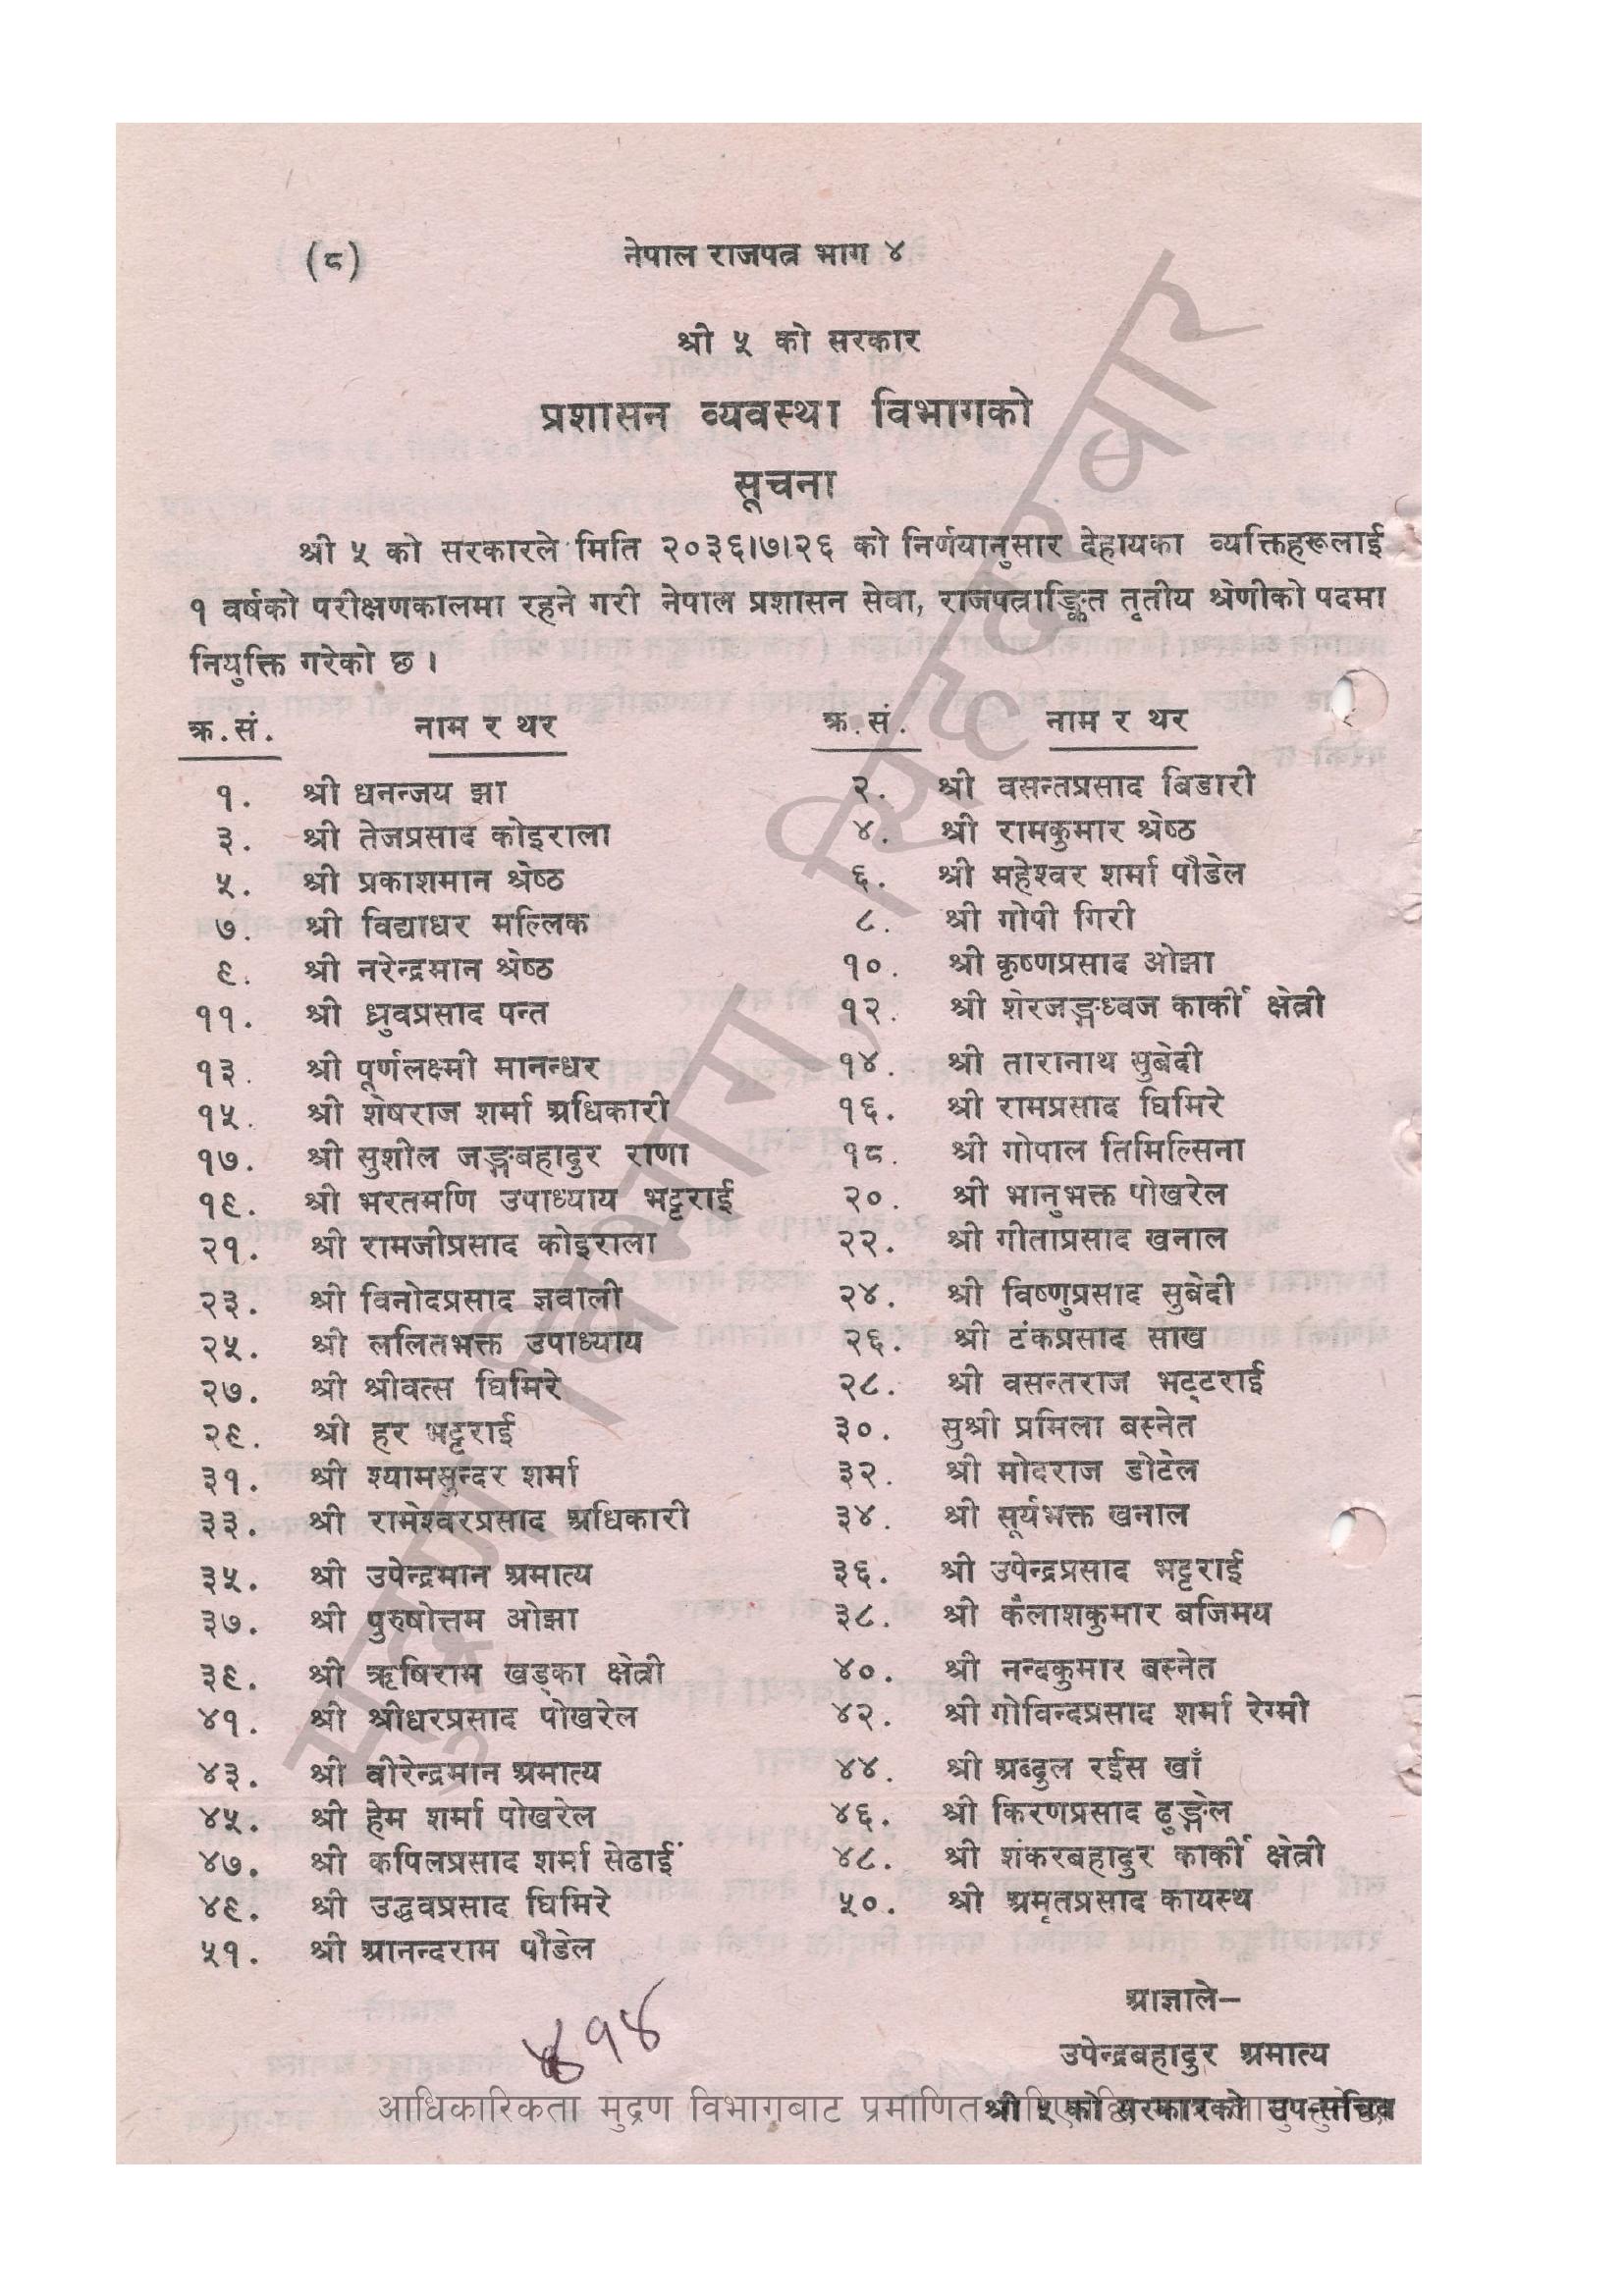 (८) नेपाल राजपत्र भाग ४
श्री ५ को सरकार
प्रशासन व्यवस्था विभागको
सूचना
श्री ५ को सरकारले मिति २०३६।७।२६ को निर्णयानुसार देहायका व्यक्तिहरूलाई
१ वर्षको परीक्षणकालमा रहने गरी नेपाल प्रशासन सेवा, राजपत्राङ्कित तृतीय श्रेणीको पदमा
नियुक्ति गरेको छ ।
क्र.सं. नाम र थर क्र.सं. नाम र थर
१. श्री धनन्जय झा २. श्री वसन्तप्रसाद बिडारी
३. श्री तेजप्रसाद कोइराला ४. श्री रामकुमार श्रेष्ठ
५. श्री प्रकाशमान श्रेष्ठ ६. श्री महेश्वर शर्मा पौडेल
७. श्री विद्याधर मल्लिक ८. श्री गोपी गिरी
९. श्री नरेन्द्रमान श्रेष्ठ १०. श्री कृष्णप्रसाद ओझा
११. श्री ध्रुवप्रसाद पन्त १२. श्री शेरजङ्गध्वज कार्की क्षेत्री
१३. श्री पूर्णलक्ष्मी मानन्धर १४. श्री तारानाथ सुबेदी
१५. श्री शेषराज शर्मा अधिकारी १६. श्री रामप्रसाद घिमिरे
१७. श्री सुशील जङ्गबहादुर राणा १८. श्री गोपाल तिमिल्सिना
१९. श्री भरतमणि उपाध्याय भट्टराई २०. श्री भानुभक्त पोखरेल
२१. श्री रामजीप्रसाद कोइराला २२. श्री गीताप्रसाद खनाल
२३. श्री विनोदप्रसाद ज्ञवाली २४. श्री विष्णुप्रसाद सुबेदी
२५. श्री ललितभक्त उपाध्याय २६. श्री टंकप्रसाद साख
२७. श्री श्रीवत्स घिमिरे २८. श्री वसन्तराज भट्टराई
२९. श्री हर भट्टराई ३०. सुश्री प्रमिला बस्नेत
३१. श्री श्यामसुन्दर शर्मा ३२. श्री मोदराज डोटेल
३३. श्री रामेश्वरप्रसाद अधिकारी ३४. श्री सूर्यभक्त खनाल
३५. श्री उपेन्द्रमान अमात्य ३६. श्री उपेन्द्रप्रसाद भट्टराई
३७. श्री पुरुषोत्तम ओझा ३८. श्री कैलाशकुमार बजिमय
३९. श्री ऋषिराम खड्का क्षेत्री ४०. श्री नन्दकुमार बस्नेत
४१. श्री श्रीधरप्रसाद पोखरेल ४२. श्री गोविन्दप्रसाद शर्मा रेग्मी
४३. श्री वीरेन्द्रमान अमात्य ४४. श्री अब्दुल रईस खाँ
४५. श्री हेम शर्मा पोखरेल ४६. श्री किरणप्रसाद ढुङ्गेल
४७. श्री कपिलप्रसाद शर्मा सेढाईं ४८. श्री शंकरबहादुर कार्की क्षेत्री
४९. श्री उद्धवप्रसाद घिमिरे ५०. श्री अमृतप्रसाद कायस्थ
५१. श्री आनन्दराम पौडेल
आज्ञाले–
उपेन्द्रबहादुर अमात्य
श्री ५ को सरकारको उप-सचिव
४१४
आधिकारिकता मुद्रण विभागबाट प्रमाणित
मुद्रण विभाग, सिंहदरबार